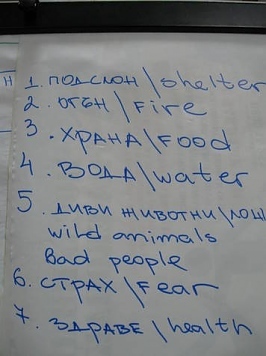 1. подслон\shelter
2. огън\Fire
3. храна\Food
4. вода\water
5. диви животни\лош
wild animals
Bad people
6. страх\Fear
7. здраве\health